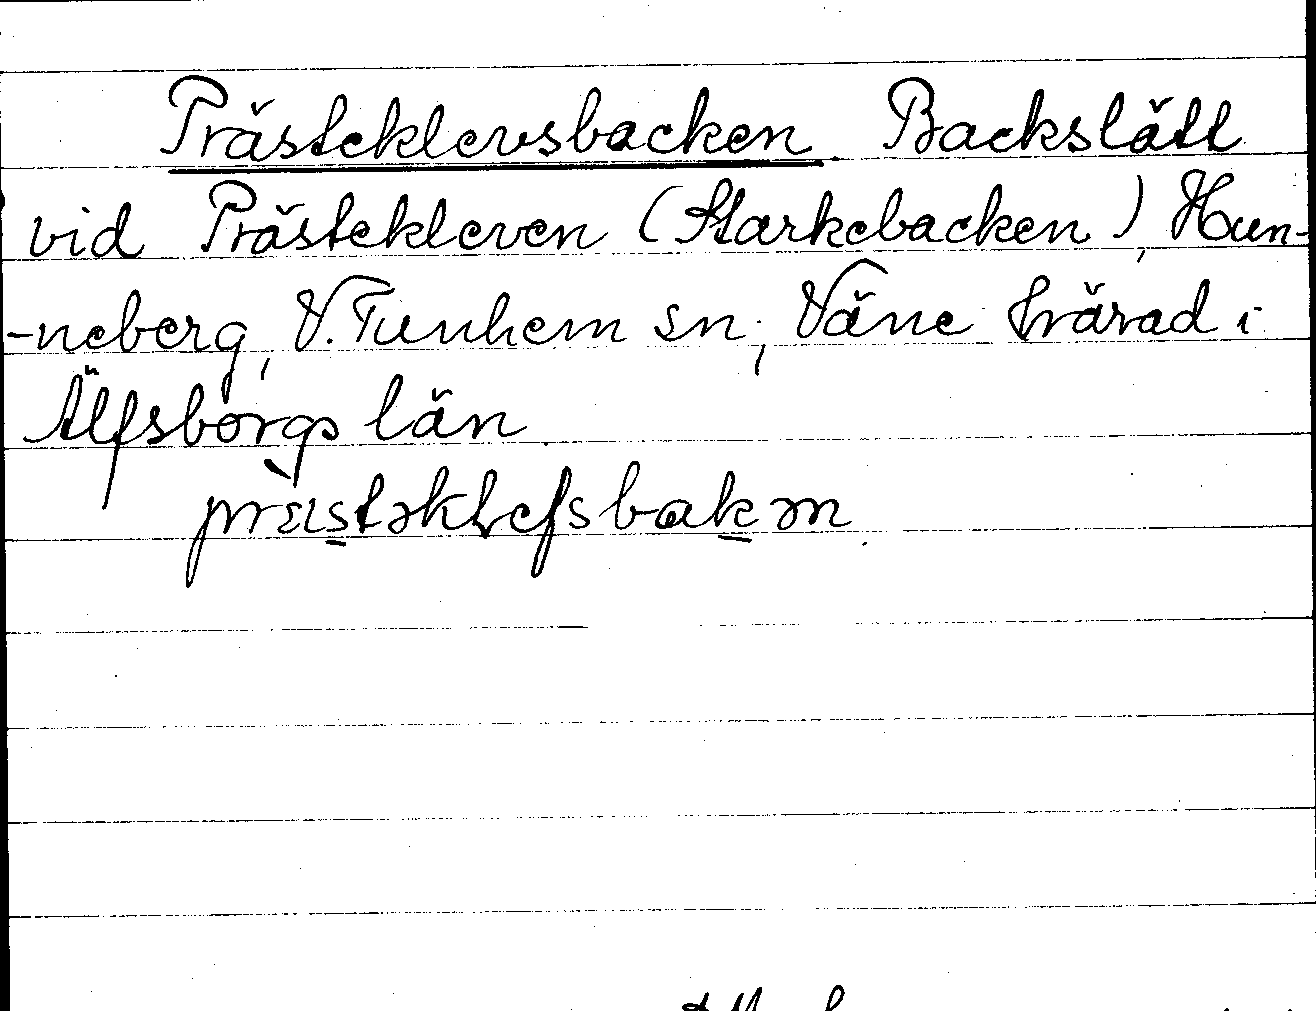 Prästeklevsbacken Backslätt
vid Prästekleven (Starkebacken), Hun-
-neberg, V. Tunhem sn; Väne härad i
Älfsborgs län